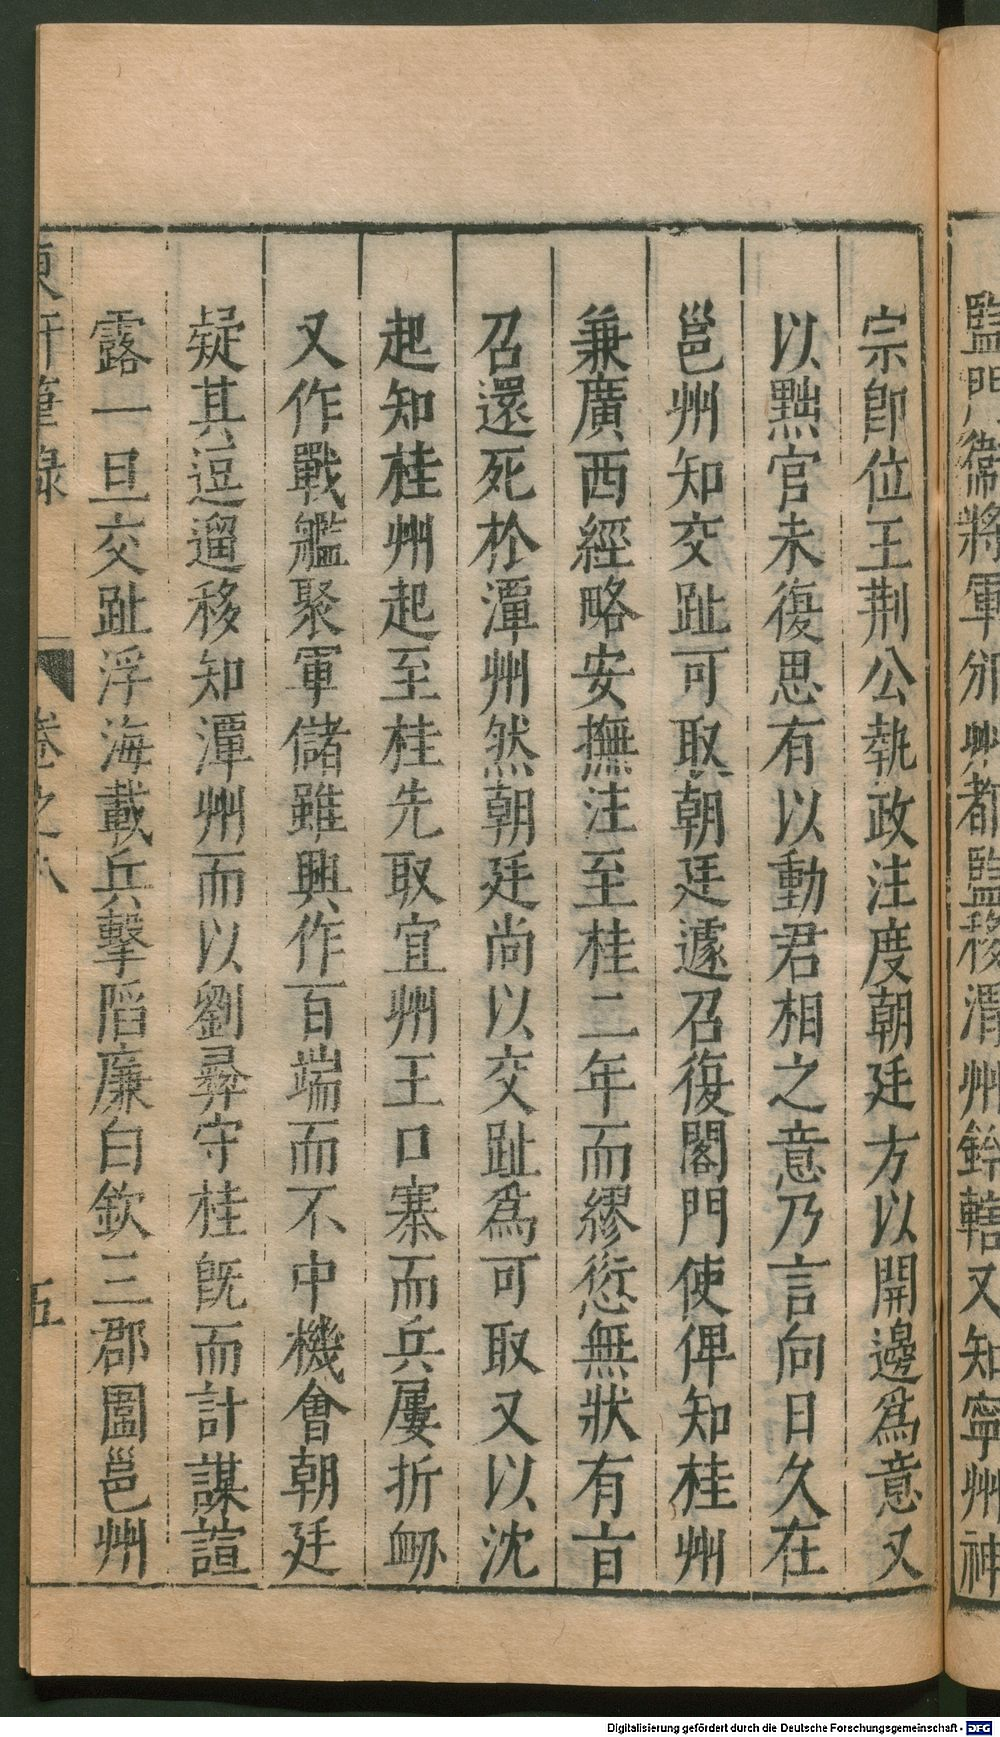 監門衛將軍汾州都監移渭州鈐轄又知寧州神
宗卽位王荆公執政注度朝廷方以開邊爲意又
以黜官未復思有以動君相之意乃言向日久在
邕州知交趾可取朝廷遽召復閤門使俾知桂州
兼廣西經略安撫注至桂二年而繆愆無狀有旨
召還死於潭州然朝廷尚以交趾爲可取又以沈
起知桂州起至桂先取宜州王口寨而兵屢折衂
又作戰艦聚軍儲雖興作百端而不中機會朝廷
疑其逗遛移知潭州而以劉彞守桂旣而計謀諠
露一旦交趾浮海載兵擊陷廉白欽三郡圍邕州
東軒筆錄
卷之八
五
Digitalisierung gefördert durch die Deutsche Forschungsgemeinschaft - DFG